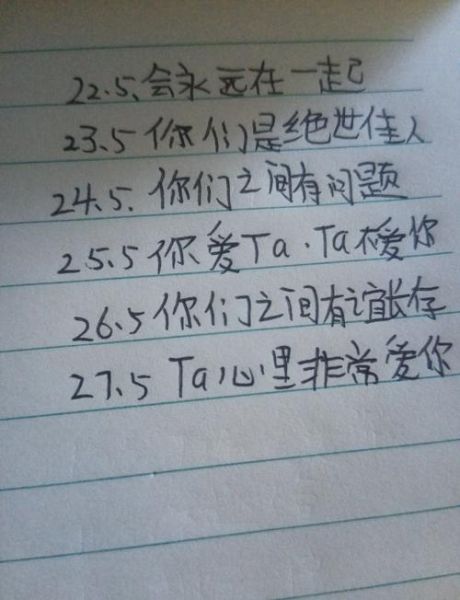 22.5、会永远在一起
23.5 你们是绝世佳人
24.5. 你们之间有问题
25.5 你爱Ta.Ta不爱你
26.5 你们之间有谊长存
27.5 Ta心里非常爱你